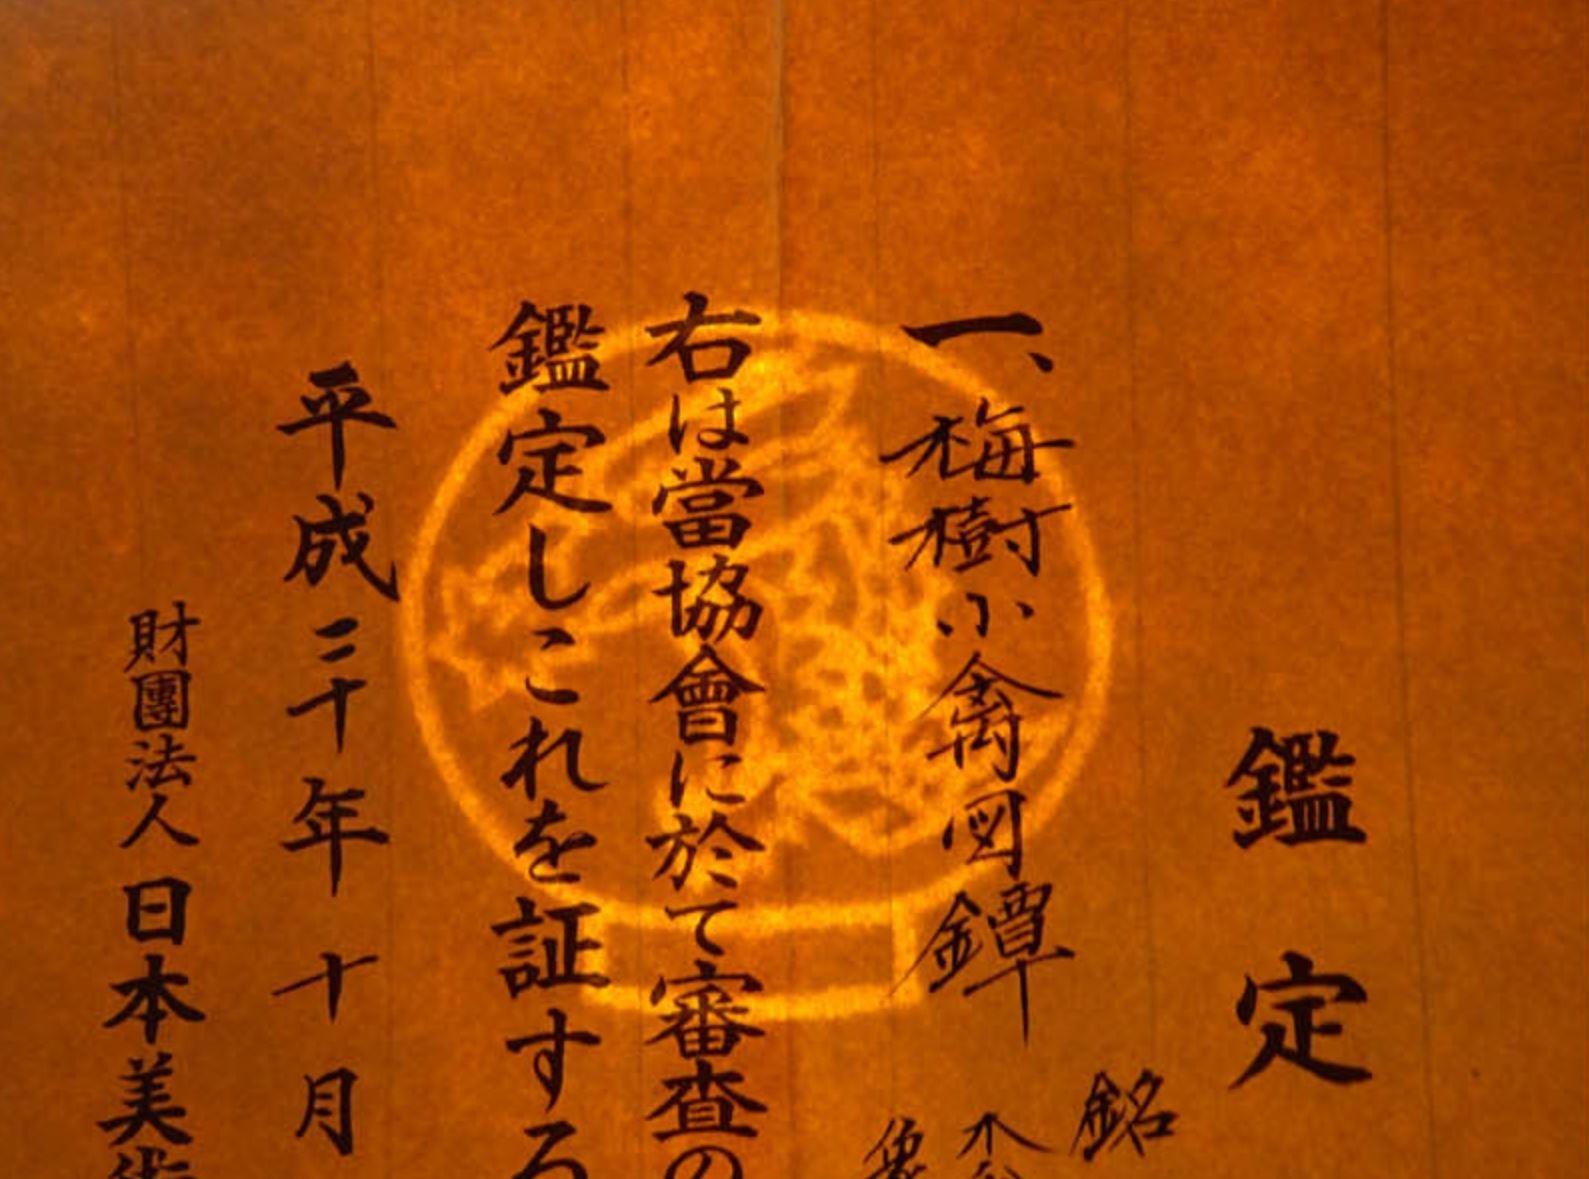 鑑定
一、梅樹小禽図鐔
銘
右は當協會に於て審査の
鑑定しこれを証する
平成二十年十月
財團法人日本美術